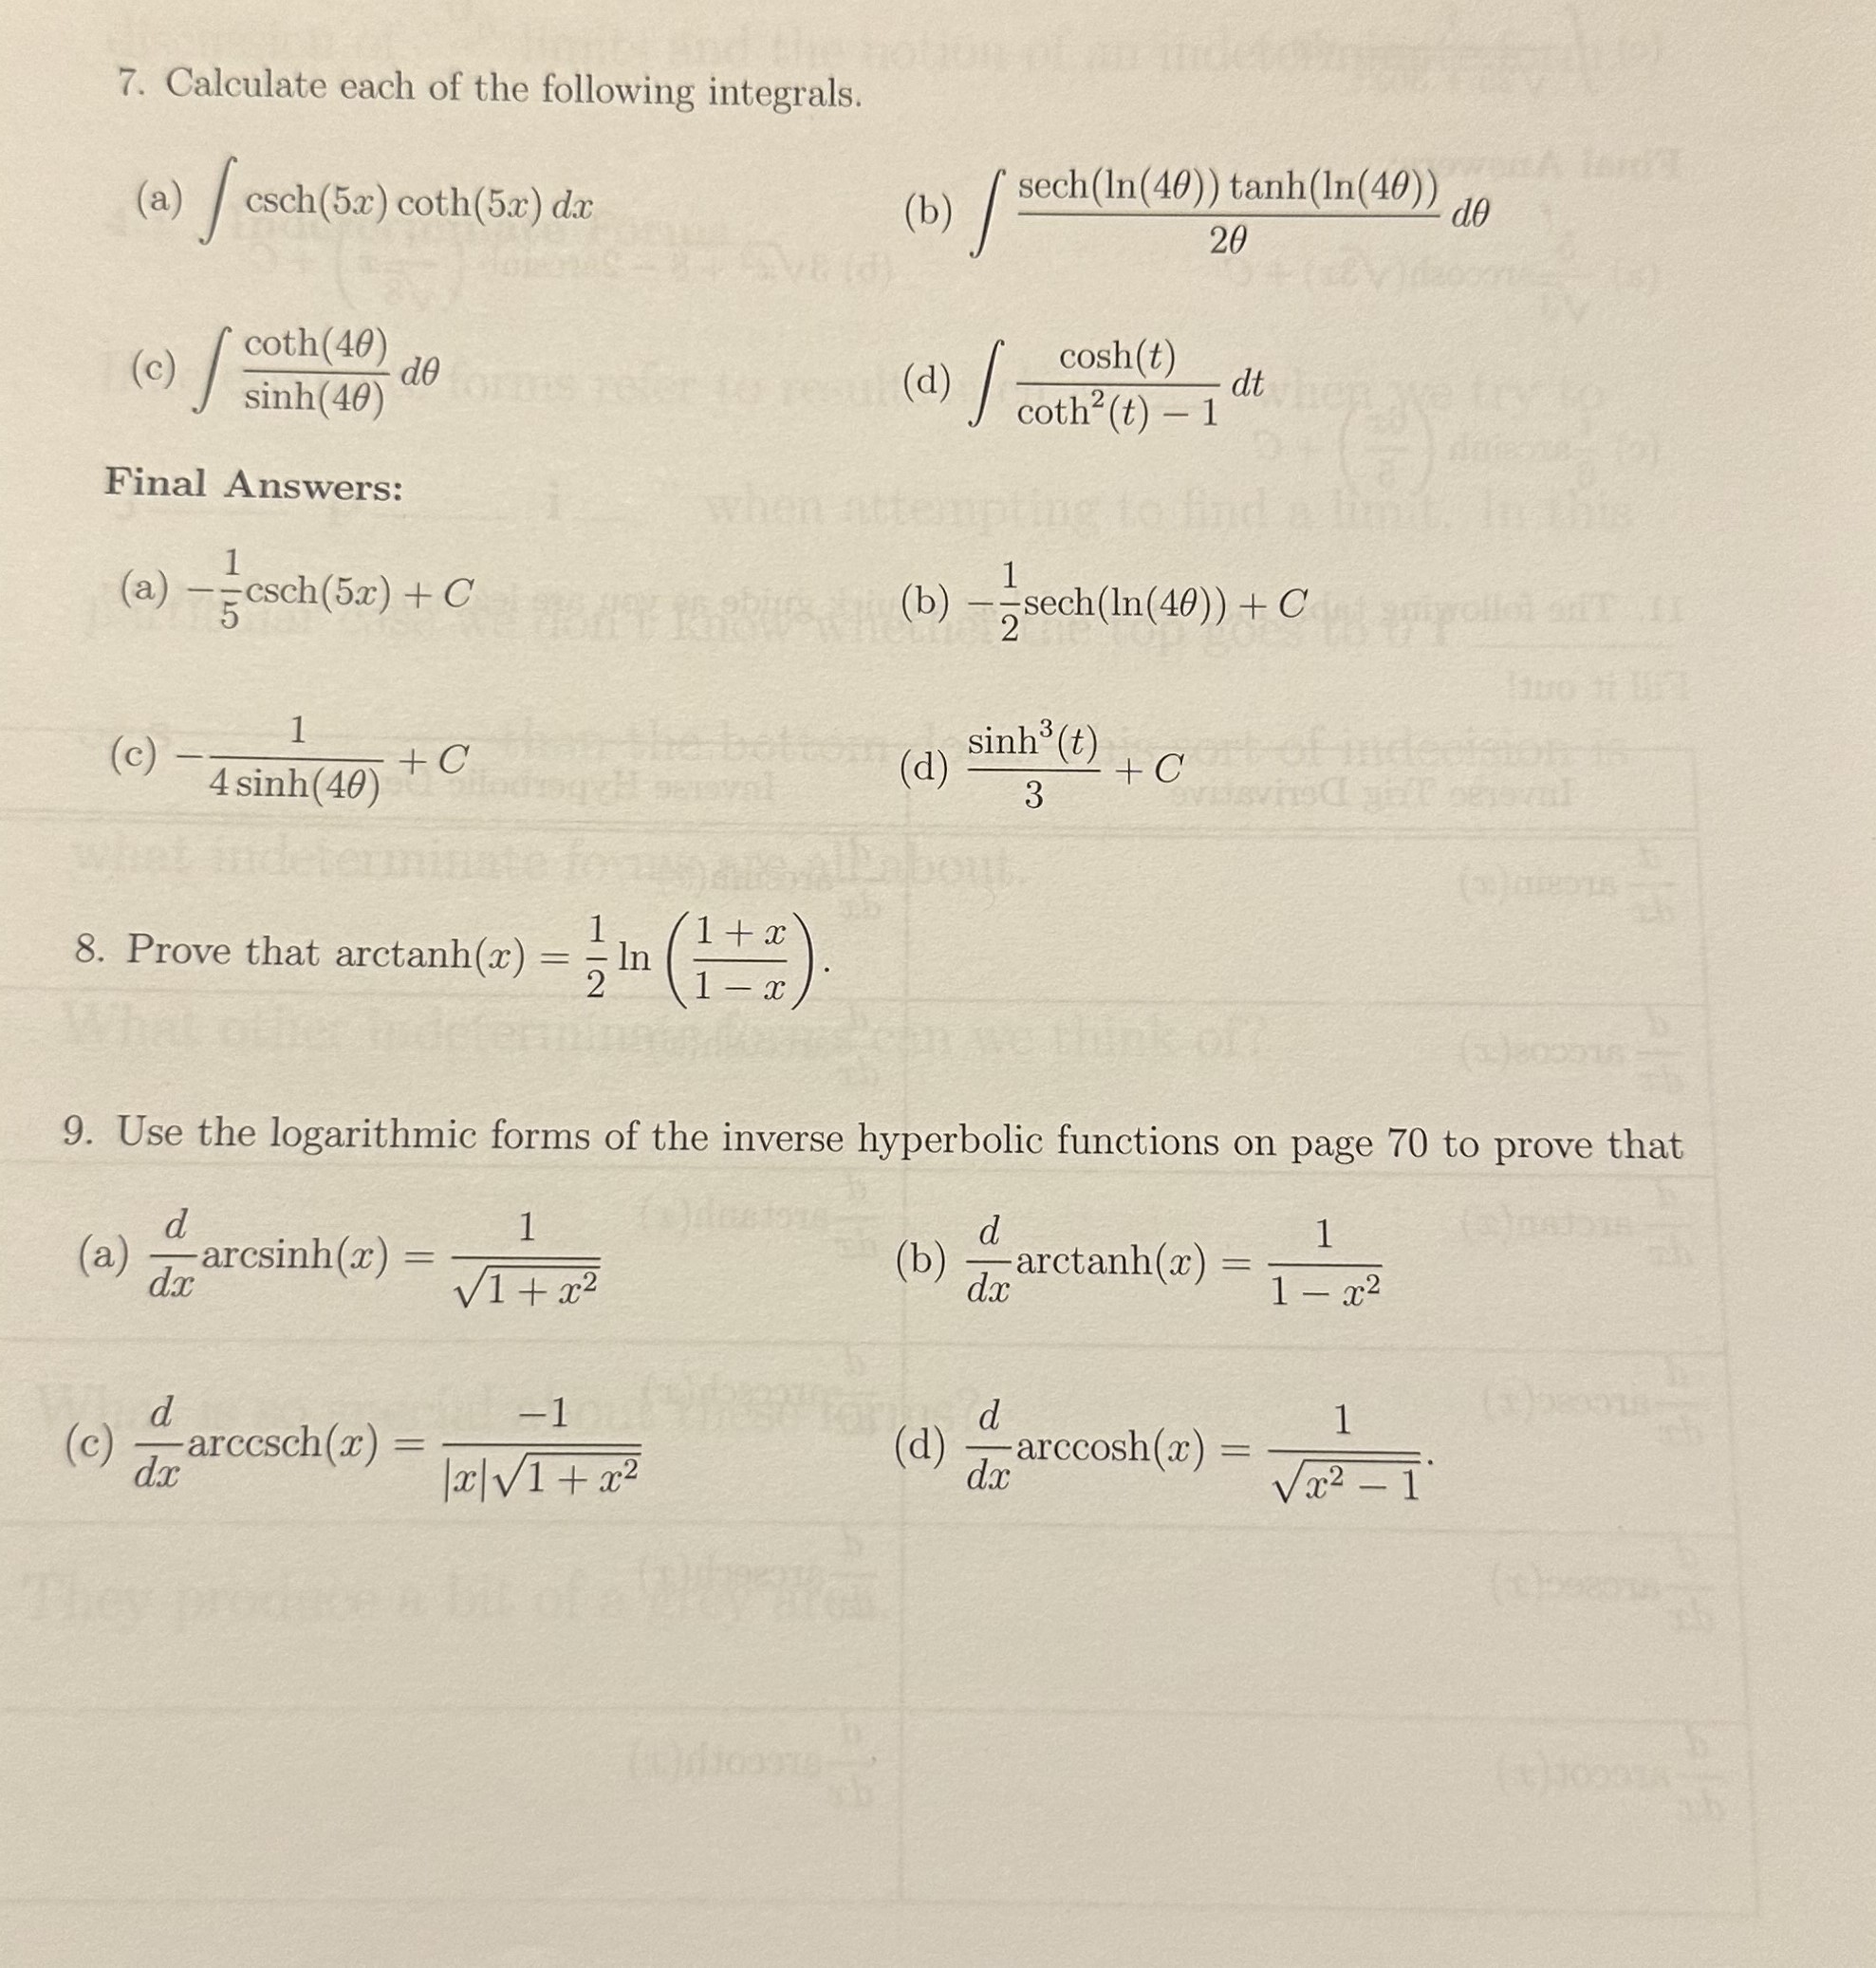 7. Calculate each of the following integrals.
(a) ∫ csch(5x) coth(5x) dx (b) ∫ sech(ln(4θ)) tanh(ln(4θ)) / 2θ dθ
(c) ∫ coth(4θ) / sinh(4θ) dθ (d) ∫ cosh(t) / (coth²(t) − 1) dt
Final Answers:
(a) −1/5 csch(5x) + C (b) −1/2 sech(ln(4θ)) + C
(c) −1 / (4 sinh(4θ)) + C (d) sinh³(t) / 3 + C
8. Prove that arctanh(x) = 1/2 ln ((1 + x) / (1 − x)).
9. Use the logarithmic forms of the inverse hyperbolic functions on page 70 to prove that
(a) d/dx arcsinh(x) = 1 / √(1 + x²) (b) d/dx arctanh(x) = 1 / (1 − x²)
(c) d/dx arccsch(x) = −1 / (|x|√(1 + x²)) (d) d/dx arccosh(x) = 1 / √(x² − 1).